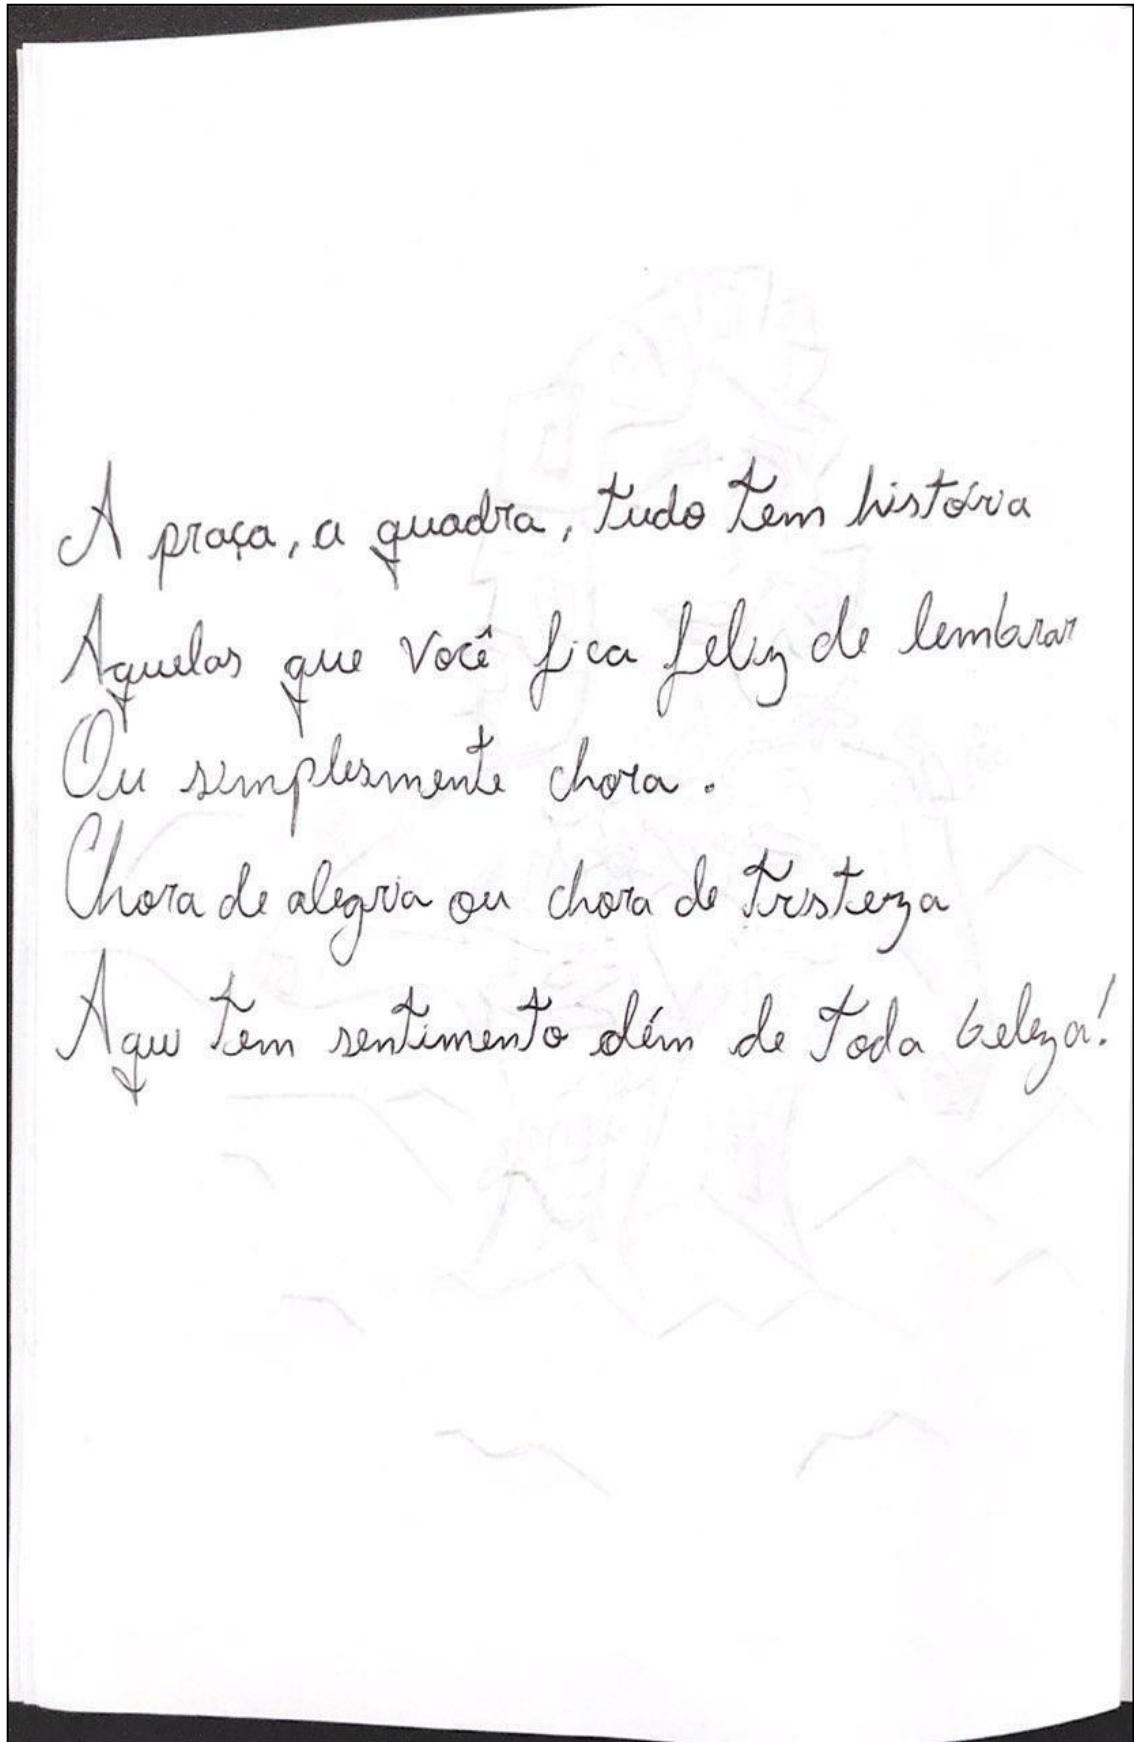 A praça, a quadra, tudo tem história
Aquelas que você fica feliz de lembrar
Ou simplesmente chora.
Chora de alegria ou chora de tristeza
Aqui tem sentimento além de toda beleza!